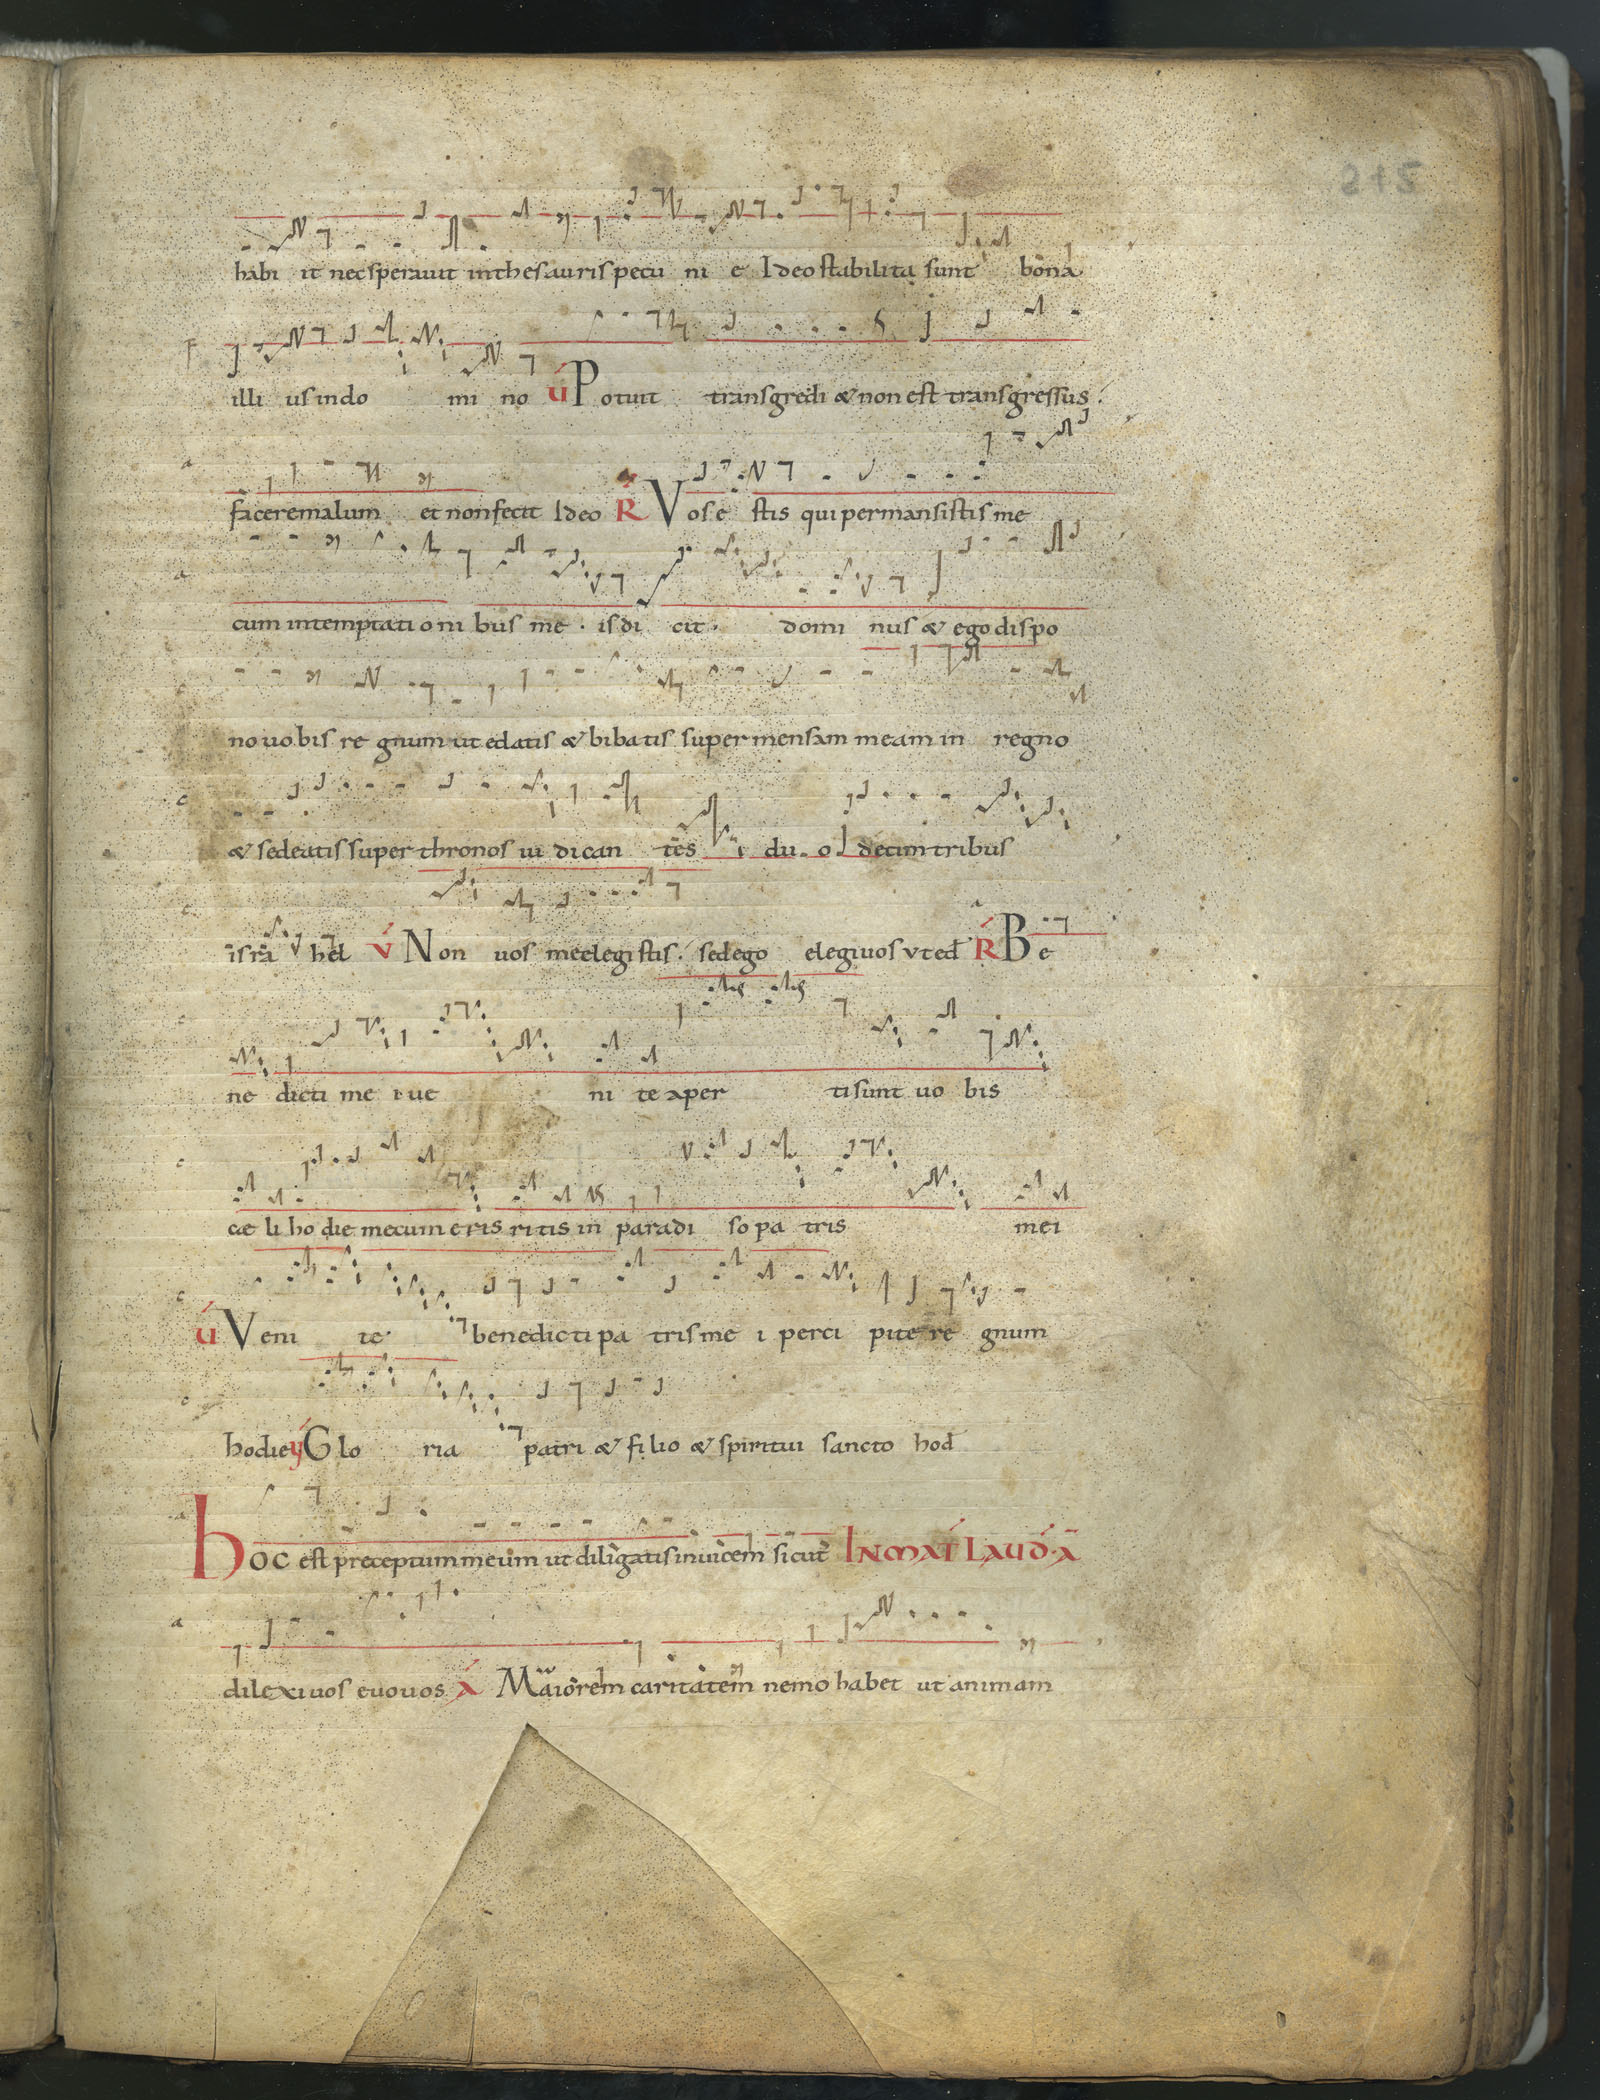 habi it nec sperauit in thesauris pecu ni e Ideo stabilita sunt bona
illi us in do mi no V Potuit transgredi & non est transgressus
facere malum et non fecit Ideo R Vos e stis qui permansistis me
cum in temptati o ni bus me · is di cit · domi nus & ego dispo
no uo bis re gnum ut edatis & bibatis super mensam meam in regno
& sedeatis super thronos iu di can tes du o decim tribus
isra hel V Non uos me elegistis · sed ego elegi uos vt ed R Be
ne dicti me i ue ni te aper ti sunt uo bis
cæ li ho die mecum eris ritis in paradi so pa tris mei
V Veni te benedicti pa tris me i perci pite re gnum
hodie Glo ria patri & filio & spiritui sancto hod
Hoc est preceptum meum ut diligatis inuicem sicut IN MAT LAUD · A
dilexi uos euouos A Maiorem caritatem nemo habet ut animam